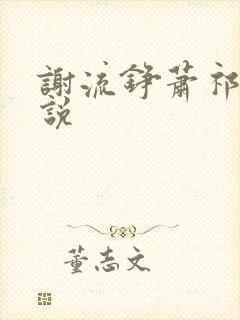 謝流錚蕭祁
說
董志文